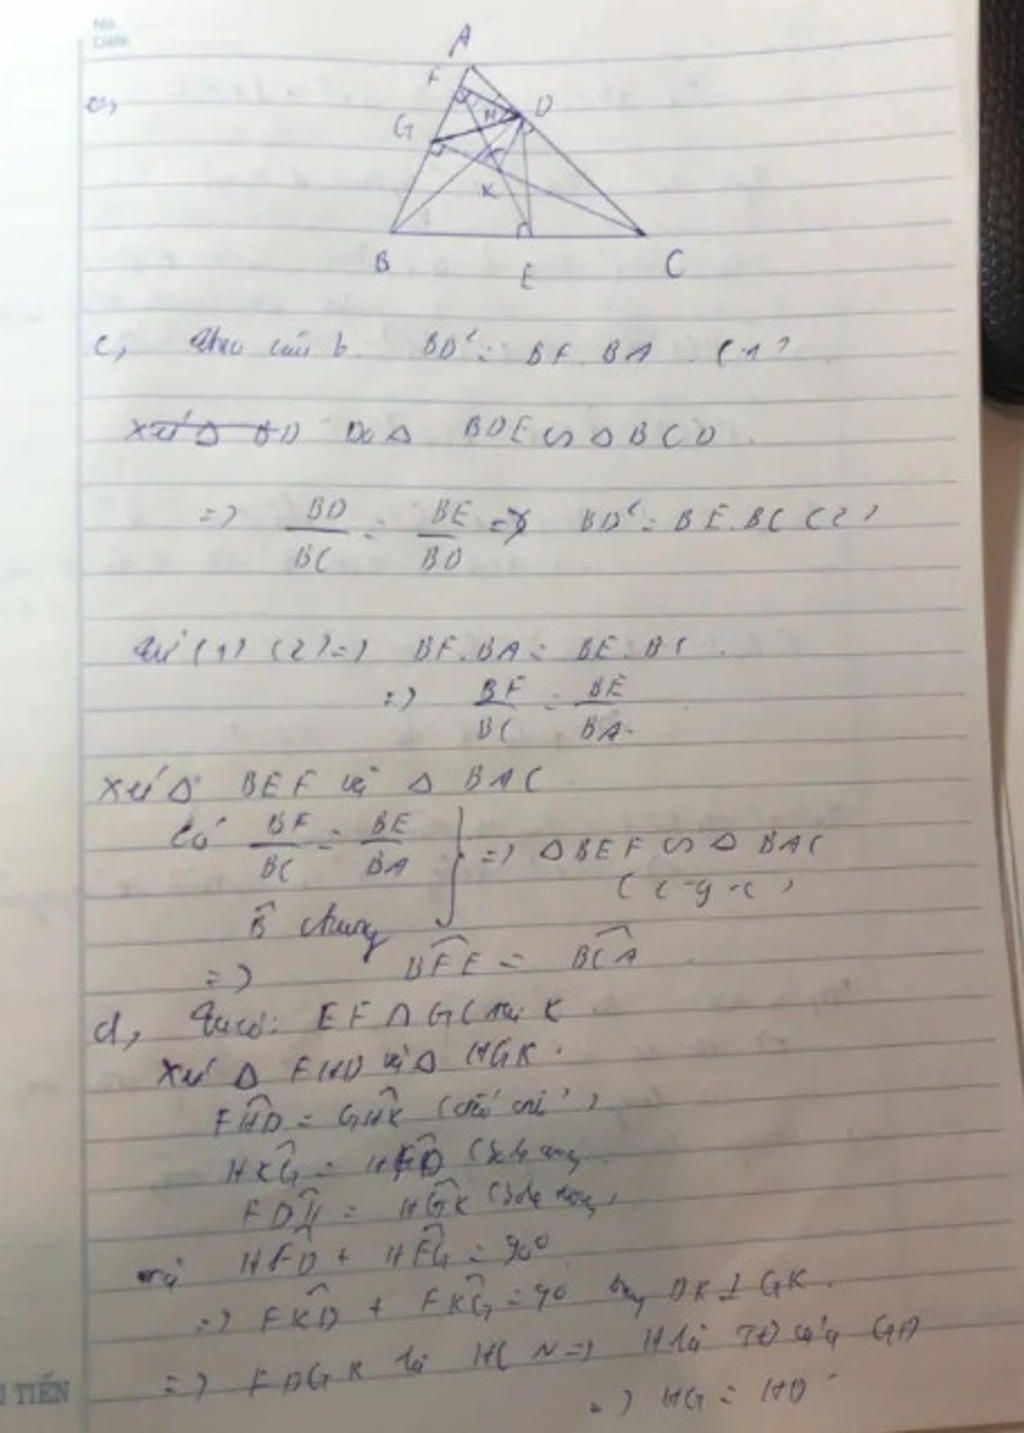 No.
Date
A
F
D
H
G
K
B
E
C
c, Theo câu b: BD² = BF. BA (1)
Xét Δ BD Do Δ BDE ∽ Δ BCD.
=> BD/BC = BE/BD => BD² = BE.BC (2)
Từ (1) (2) => BF.BA = BE.BC.
=> BF/BC = BE/BA.
Xét Δ BEF và Δ BAC.
Có BF/BC = BE/BA } => Δ BEF ∽ Δ BAC
(c-g-c)
B̂ chung
=> BFE = BCA
d, Ta có: EF GC tại K
Xét Δ FHD và Δ HGK.
FHD = GHK (đối đỉnh)
HKG = HFD (so le trong
FDH = HGK (so le trong)
mà HFD + HFG = 90⁰
=> FKD + FKG = 90 hay DK ⊥ GK.
=> FDGK là HCN => H là TĐ của GD
=> HG = HD
TIẾN